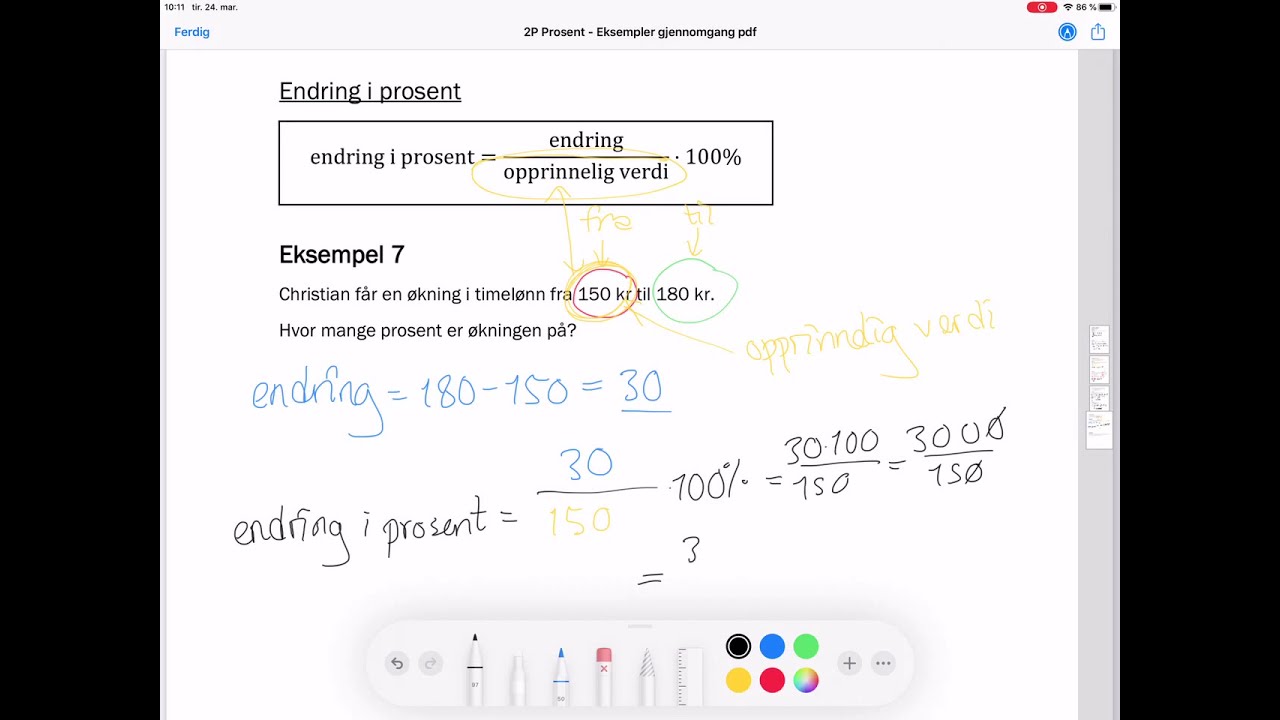 10:11 tir. 24. mar. 86 %
Ferdig 2P Prosent - Eksempler gjennomgang pdf
Endring i prosent
endring i prosent = endring / opprinnelig verdi · 100%
fra til
Eksempel 7
Christian får en økning i timelønn fra 150 kr til 180 kr.
Hvor mange prosent er økningen på?
opprinnelig verdi
endring = 180 - 150 = 30
endring i prosent = 30 / 150 · 100% = 30·100 / 150 = 3000 / 150
= 3
97 50